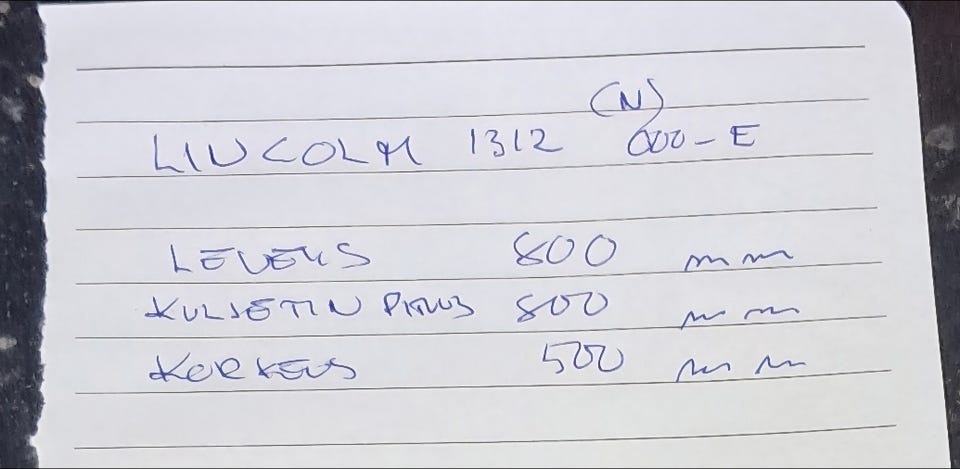 (N)
LINCOLN 1312 600-E
LEVEYS 800 mm
KULJETIN PITUUS 800 mm
KORKEUS 500 mm